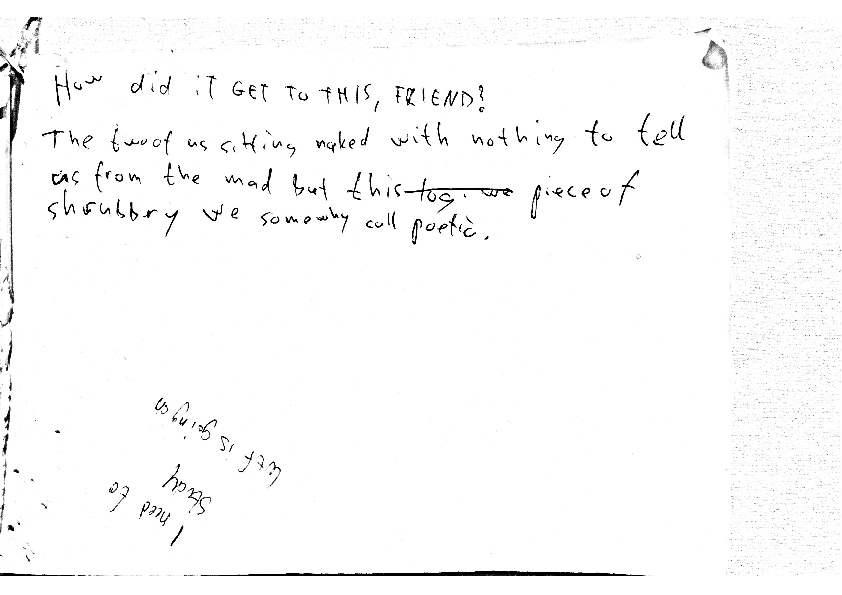 How did iT GET TO THIS, FRIEND?
The two of us sitting naked with nothing to tell
us from the mad but this piece of
shrubbry we somewhy call poetic.
I need to
stray
wtf is going on